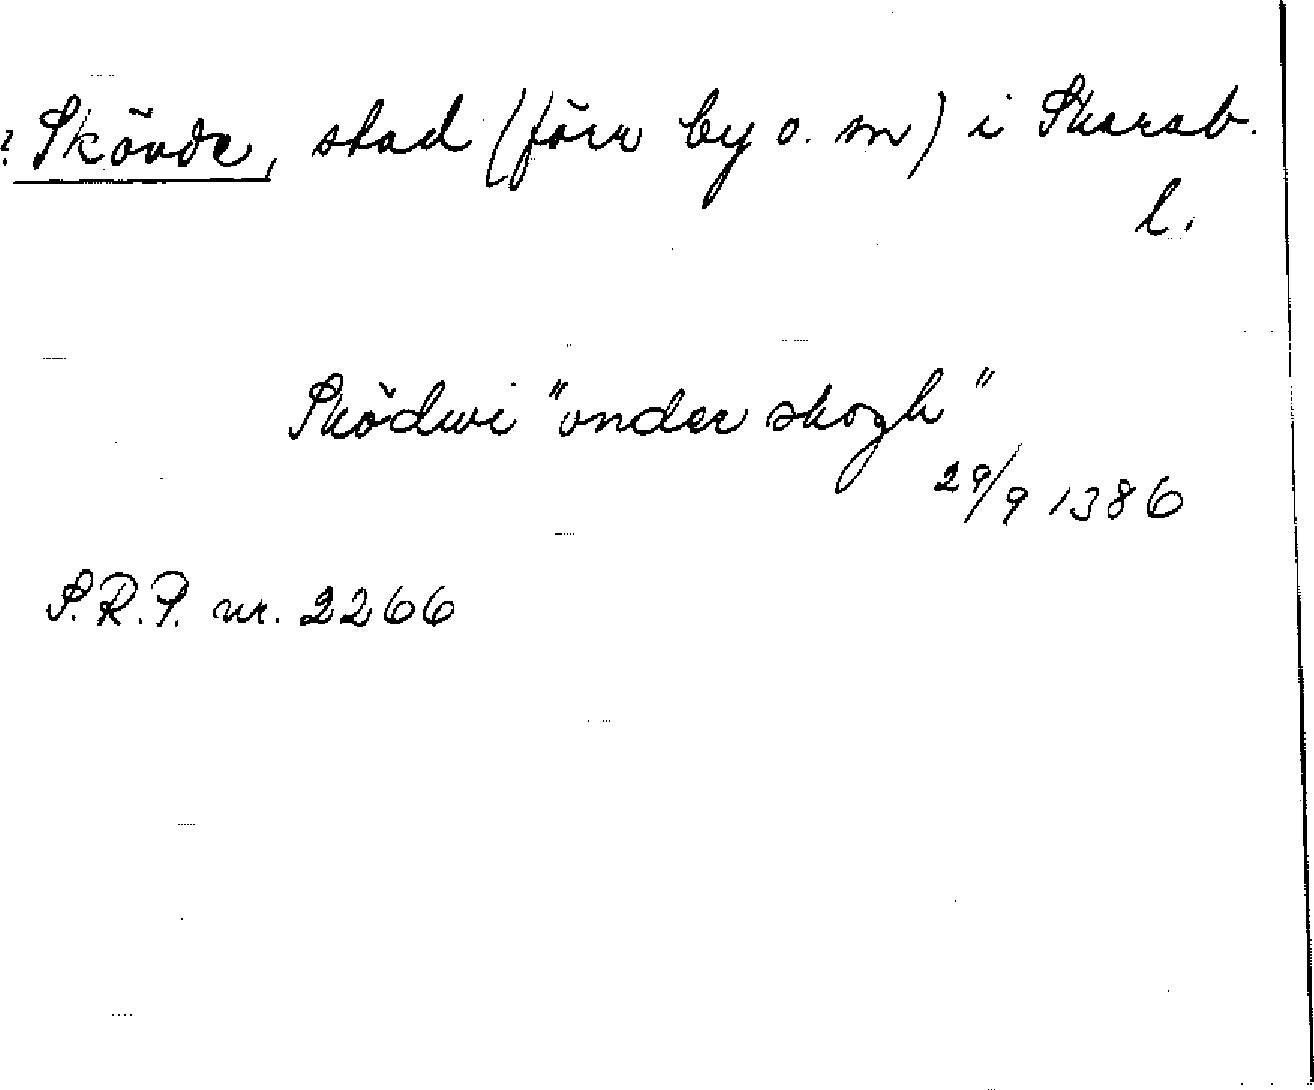 ? Skövde, stad (förr by o. sn) i Skarab.
l.
Sködwi "onder skogh"
29/9 1386
S.R.P. nr. 2266